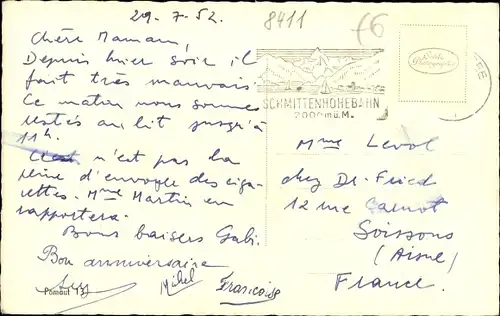 29.7.52.
8411
Chère Maman,
Depuis hier soir il
fait très mauvais.
Ce matin nous sommes
restés au lit jusqu'à
11h.
C'est n'est pas la
peine d'envoyer des ciga-
rettes. Mme Martin en
rapportera.
Bons baisers Gabi.
Bon anniversaire
Michel
Françoise
Pomaut 13
SCHMITTENHÖHEBAHN
2000 m.ü.M.
Echte
Photographie
SEE
Mme Levol
chez Dr. Fried
12 rue Carnot
Soissons
(Aisne)
France.